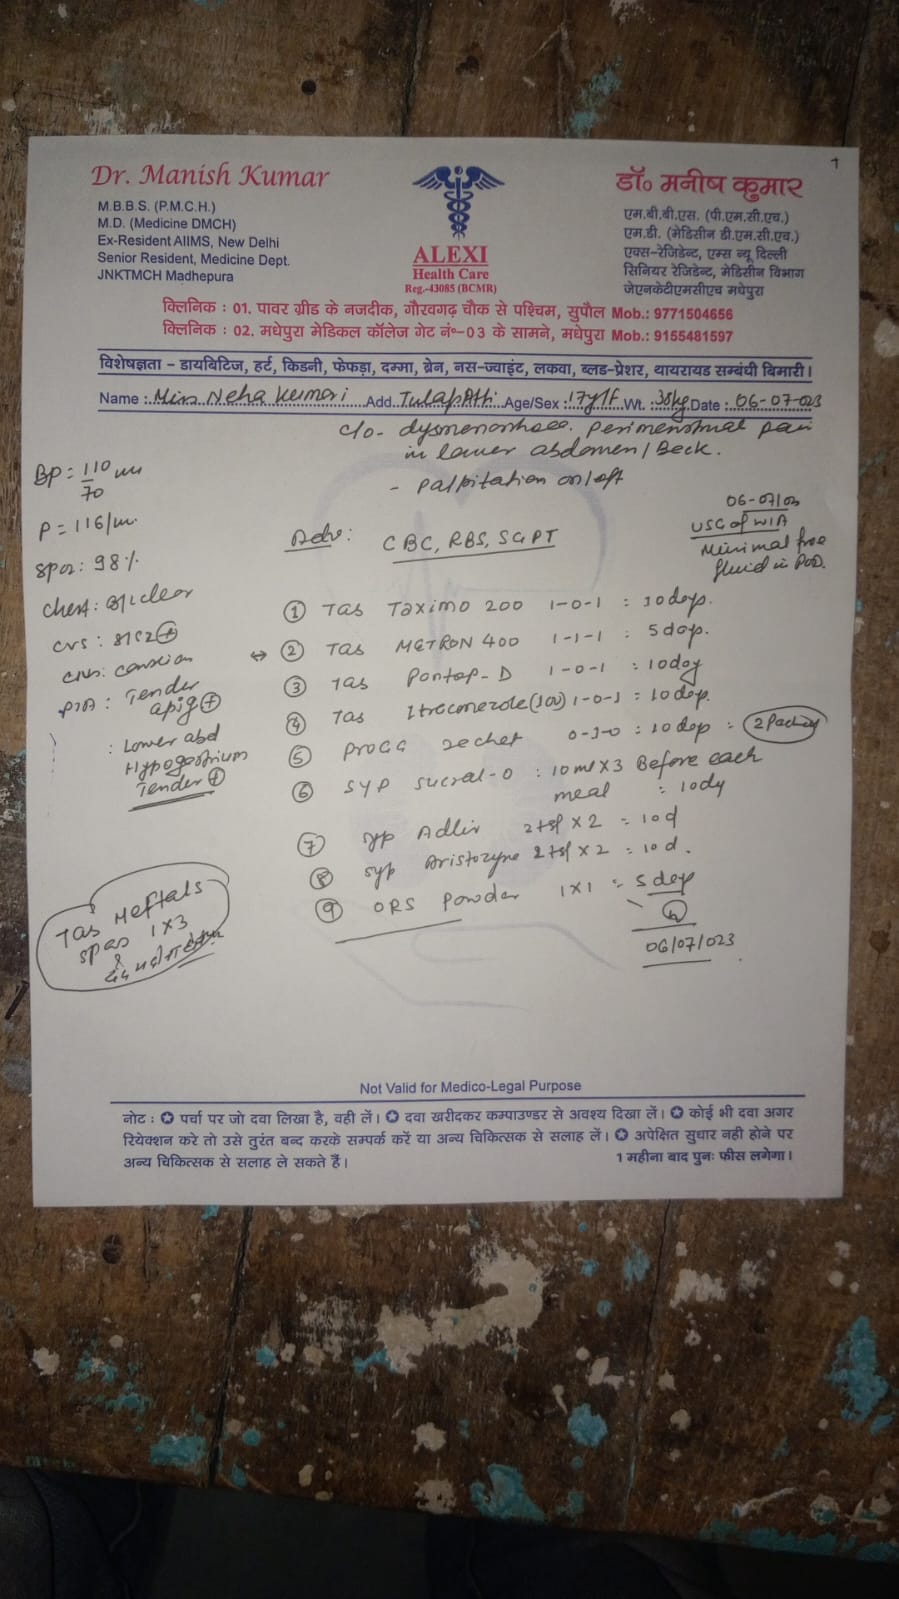 1
Dr. Manish Kumar
M.B.B.S. (P.M.C.H.)
M.D. (Medicine DMCH)
Ex-Resident AIIMS, New Delhi
Senior Resident, Medicine Dept.
JNKTMCH Madhepura
ALEXI
Health Care
Reg.-43085 (BCMR)
डॉ० मनीष कुमार
एम.बी.बी.एस. (पी.एम.सी.एच.)
एम.डी. (मेडिसीन डी.एम.सी.एच.)
एक्स-रेजिडेन्ट, एम्स न्यू दिल्ली
सिनियर रेजिडेन्ट, मेडिसीन विभाग
जेएनकेटीएमसीएच मधेपुरा
क्लिनिक : 01. पावर ग्रीड के नजदीक, गौरवगढ़ चौक से पश्चिम, सुपौल Mob.: 9771504656
क्लिनिक : 02. मधेपुरा मेडिकल कॉलेज गेट नं०-03 के सामने, मधेपुरा Mob.: 9155481597
विशेषज्ञता - डायबिटिज, हर्ट, किडनी, फेफड़ा, दम्मा, ब्रेन, नस-ज्वाइंट, लकवा, ब्लड-प्रेशर, थायरायड सम्बंधी बिमारी।
Name : Miss Neha Kumari Add. Tulapatti Age/Sex : 17y/F Wt. : 38kg Date : 06-07-023
c/o - dysmenorrhoea. perimenstrual pain
in lower abdomen / Back.
- Palpitation on/off
BP = 110/70
P = 116/m.
SPO2: 98%
Chest: B/L clear
CVS: S1S2 +
P/A: Tender
epig +
: Lower abd
Hypogastrium
Tender +
06-07/023
USG of W/A
Minimal free
fluid in POD.
Adv: CBC, RBS, SGPT
① Tab Taximo 200 1-0-1 : 10 days.
② Tab METRON 400 1-1-1 : 5 days.
③ Tab Pantop-D 1-0-1 : 10 day
④ Tab Itraconazole (100) 1-0-1 = 10 days.
⑤ ProGG sachet 0-1-0 : 10 days =
⑥ Syp Sucral-O : 10ml x 3 Before each
meal : 10 dy
⑦ Syp Adliv 2 tsf x 2 = 10d
⑧ Syp Aristozyme 2 tsf x 2 = 10d.
⑨ ORS Powder 1x1 = 5 days
06/07/023
Tab Meftal
spas 1x3
Not Valid for Medico-Legal Purpose
नोट : ✪ पर्चा पर जो दवा लिखा है, वही लें। ✪ दवा खरीदकर कम्पाउण्डर से अवश्य दिखा लें। ✪ कोई भी दवा अगर
रियेक्शन करे तो उसे तुरंत बन्द करके सम्पर्क करें या अन्य चिकित्सक से सलाह लें। ✪ अपेक्षित सुधार नही होने पर
अन्य चिकित्सक से सलाह ले सकते हैं। 1 महीना बाद पुनः फीस लगेगा।